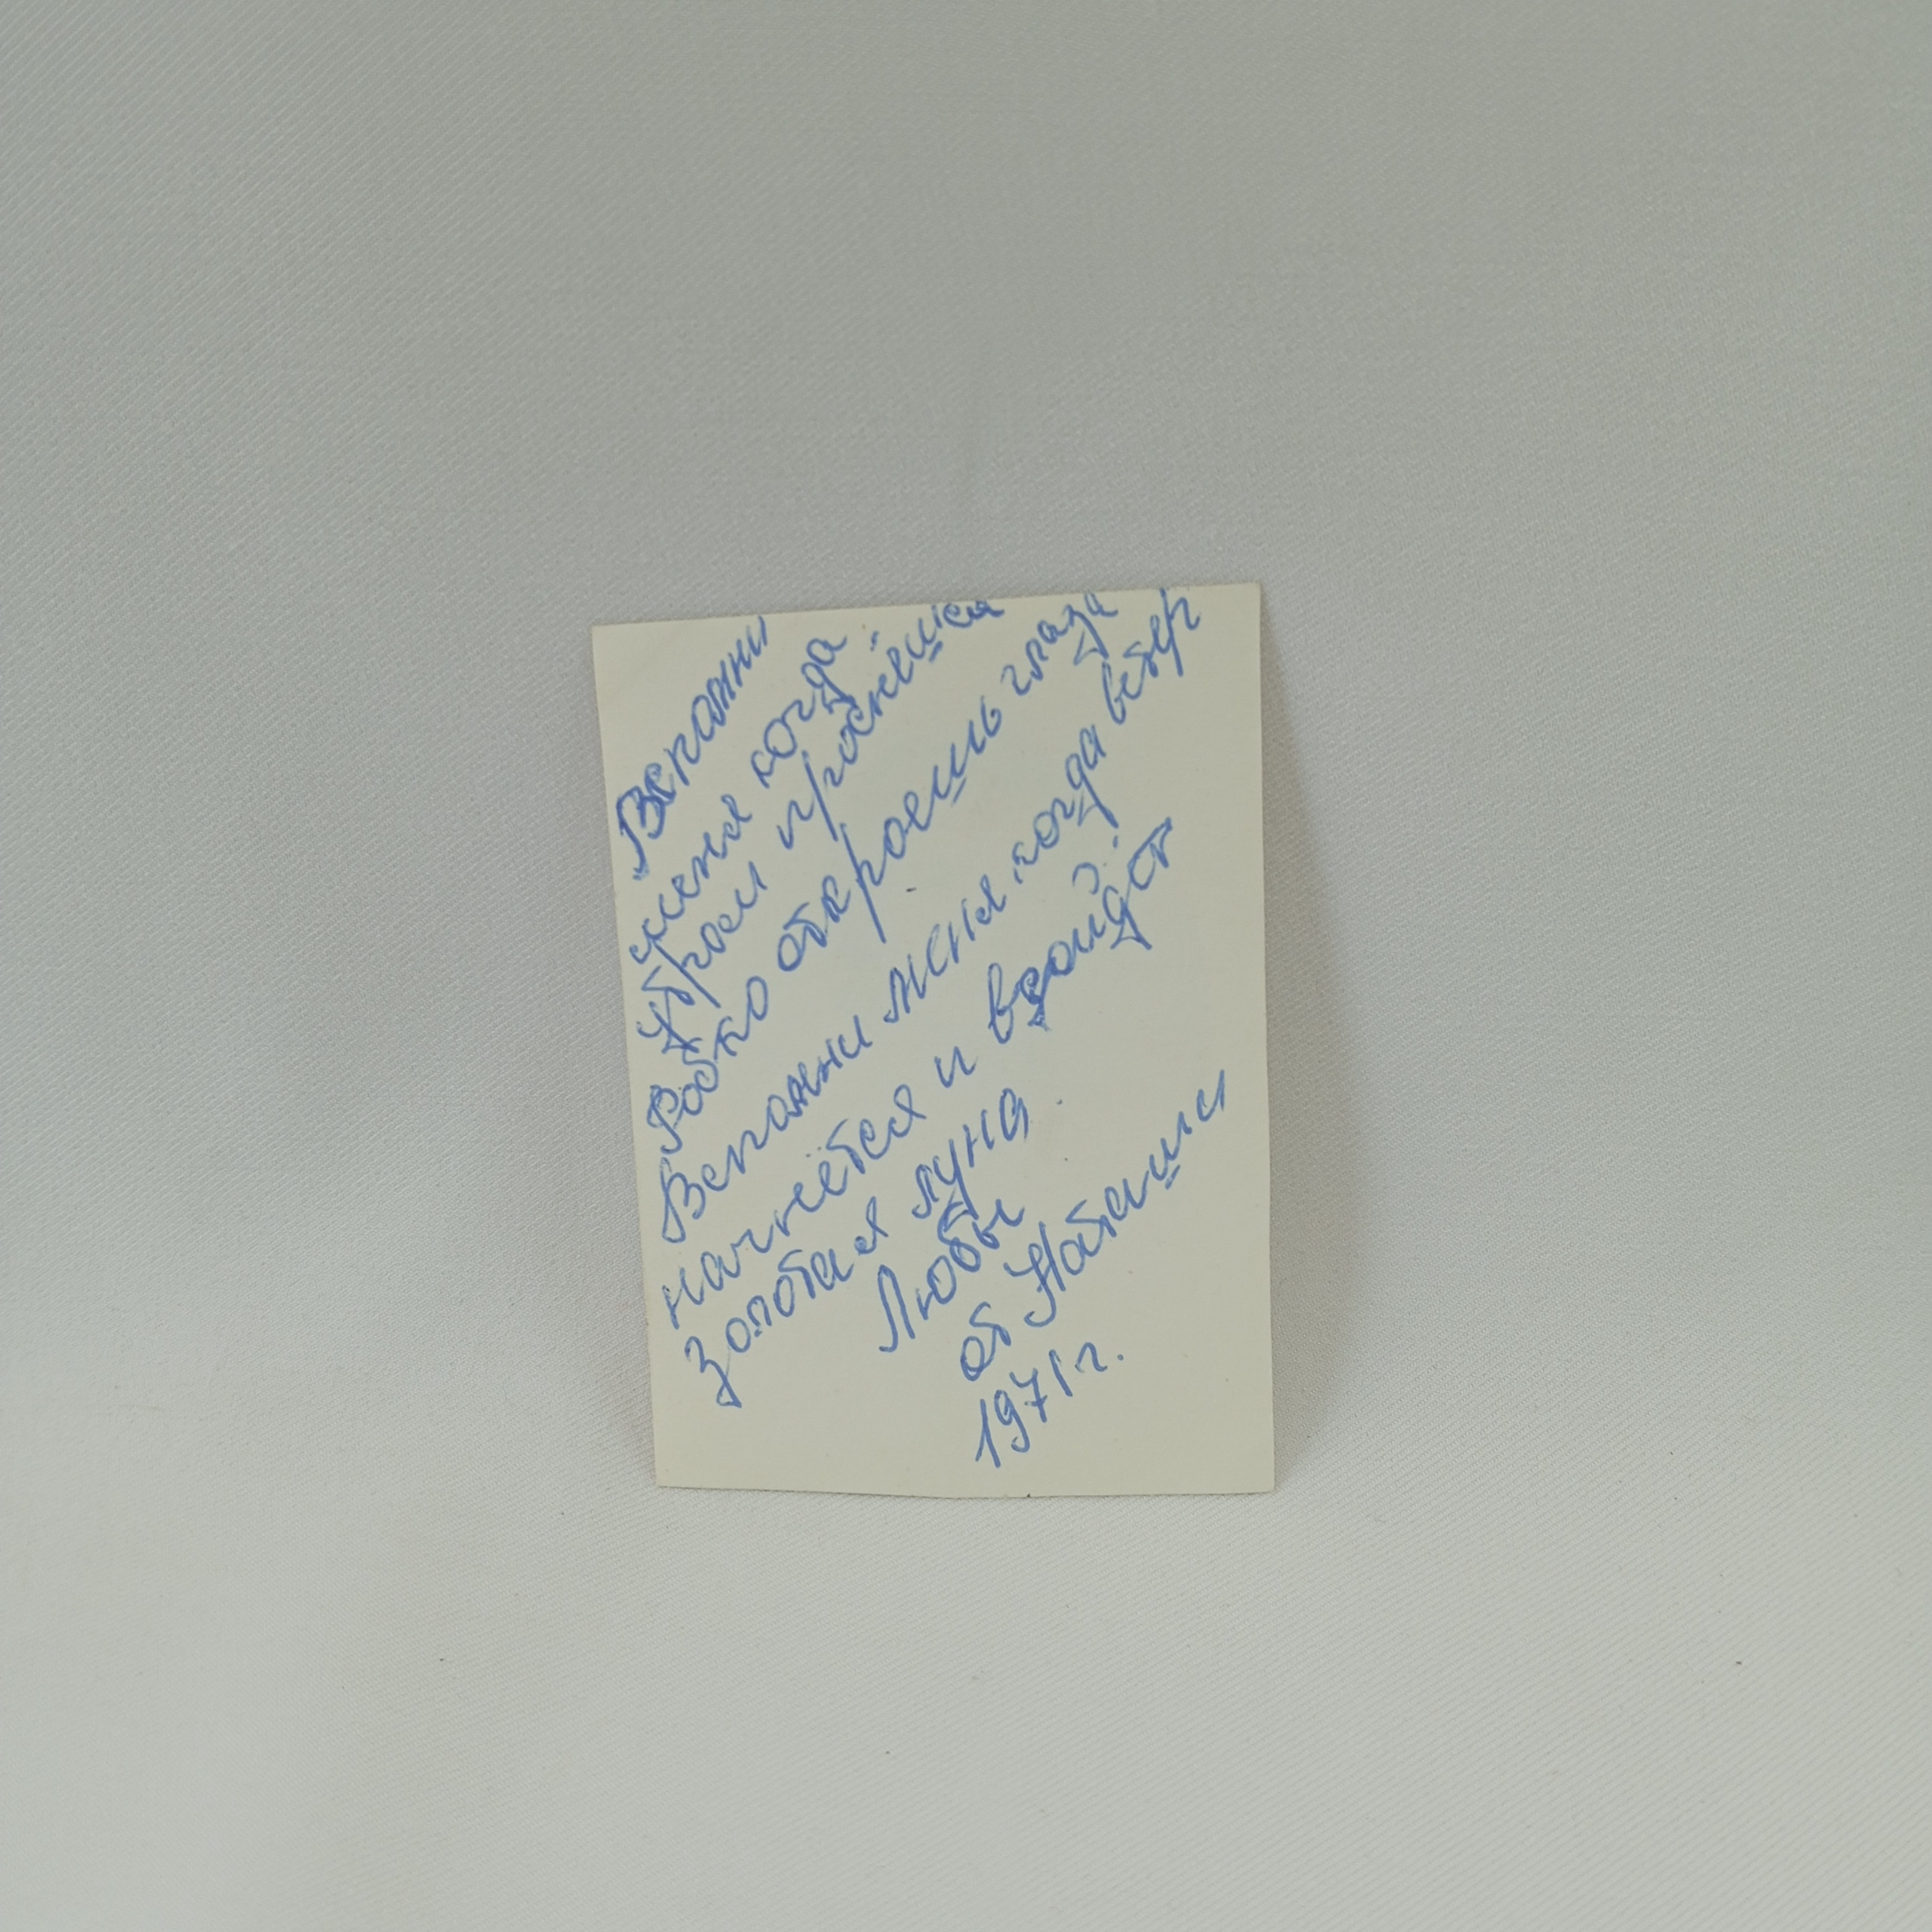 Вспомни
меня когда
Утром проснёшся
Робко откроешь глаза
Вспомни меня когда ветер
начнётся и взойдёт
золотая луна
Любы
от Наташи
1971 г.